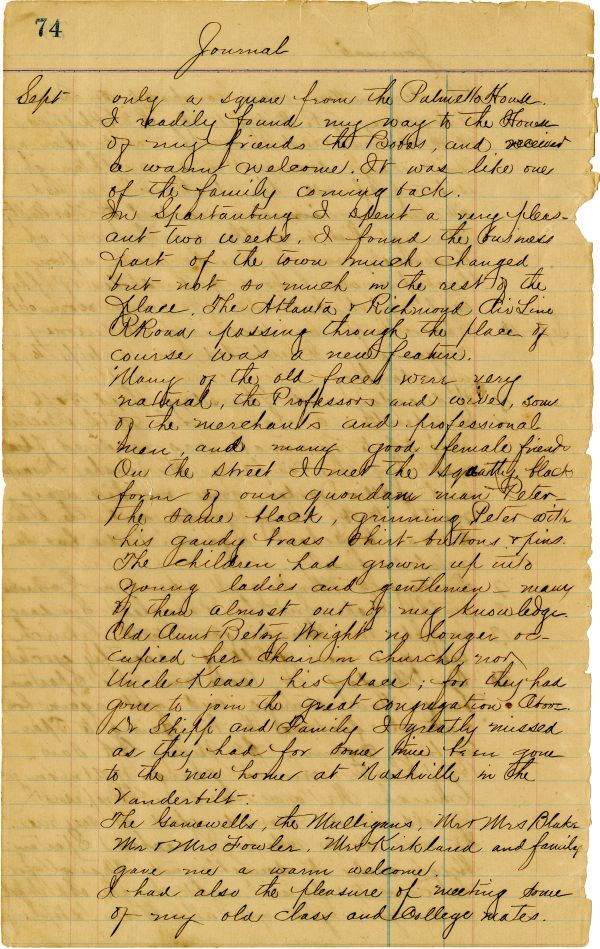 74
Journal
Sept only a square from the Palmetto House.
I readily found my way to the House
of my friends the Bobos, and received
a warm welcome. It was like one
of the family coming back.
In Spartanburg I spent a very pleas-
ant two weeks. I found the business
part of the town much changed
but not so much in the rest of the
place. The Atlanta & Richmond Air Line
RRoad passing through the place of
course was a new feature.
Many of the old faces were very
natural, the Professors and wives, some
of the merchants and professional
men, and many good female friends
On the street I met the squatty black
form of our quondam man Peter–
the same black, grinning Peter with
his gaudy brass shirt-buttons & pins.
The children had grown up into
young ladies and gentlemen – many
of them almost out of my knowledge.
Old Aunt Betsy Wright no longer oc-
cupied her chair in church, nor
Uncle Kease his place; for they had
gone to join the great congregation above.
Dr Shipp and Family I greatly missed
as they had for some time been gone
to the new home at Nashville in the
Vanderbilt.
The Gamewells, the Mulligans, Mr & Mrs Blake
Mr & Mrs Fowler, Mrs Kirkland and family
gave me a warm welcome.
I had also the pleasure of meeting some
of my old class and College mates.